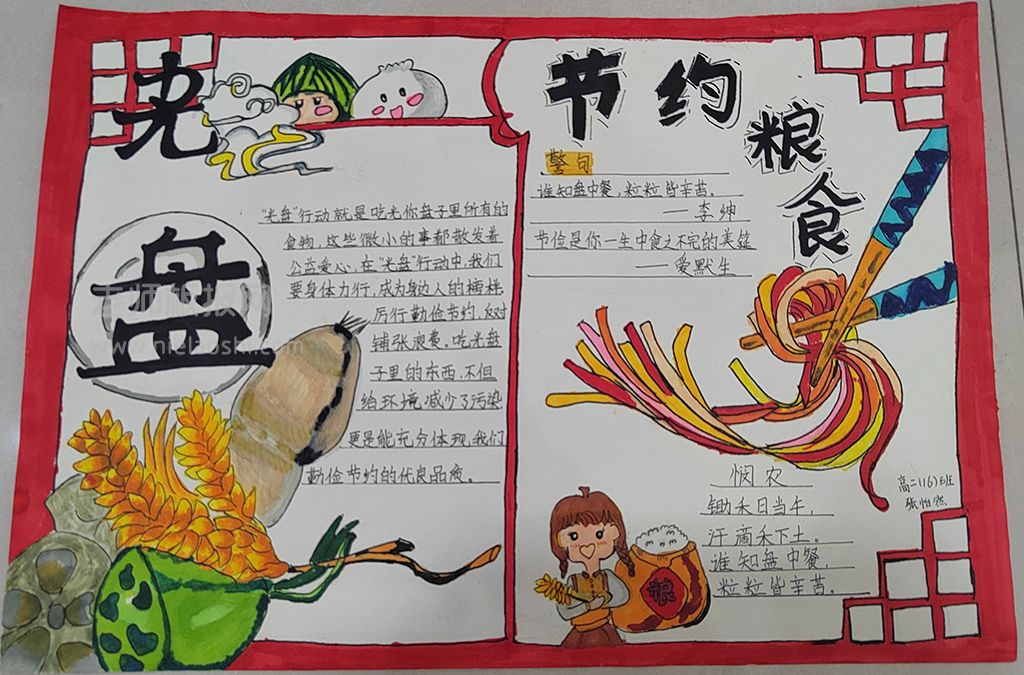 光
盘
"光盘"行动就是吃光你盘子里所有的
食物,这些微小的事都散发着
公益爱心,在"光盘"行动中,我们
要身体力行,成为身边人的榜样
厉行勤俭节约,反对
铺张浪费。吃光盘
子里的东西,不但
给环境减少了污染
更是能充分体现,我们
勤俭节约的优良品质。
节约
粮
食
警句
谁知盘中餐,粒粒皆辛苦。
——李绅
节俭是你一生中食之不完的美筵
——爱默生
悯农
锄禾日当午,
汗滴禾下土。
谁知盘中餐,
粒粒皆辛苦。
高二(16)班
张怡然
粮